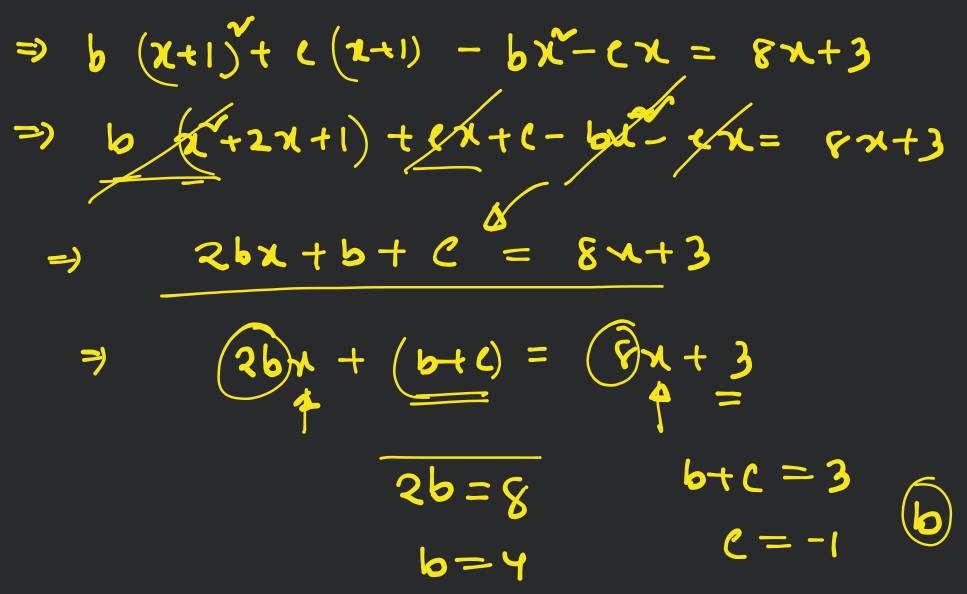 ⇒ b (x+1)² + c (x+1) - bx² - cx = 8x+3
⇒ b (x²+2x+1) + cx + c - bx² - cx = 8x+3
⇒ 2bx + b + c = 8x+3
⇒ 2bx + (b+c) = 8x + 3
2b = 8 b+c = 3
b = 4 c = -1 b